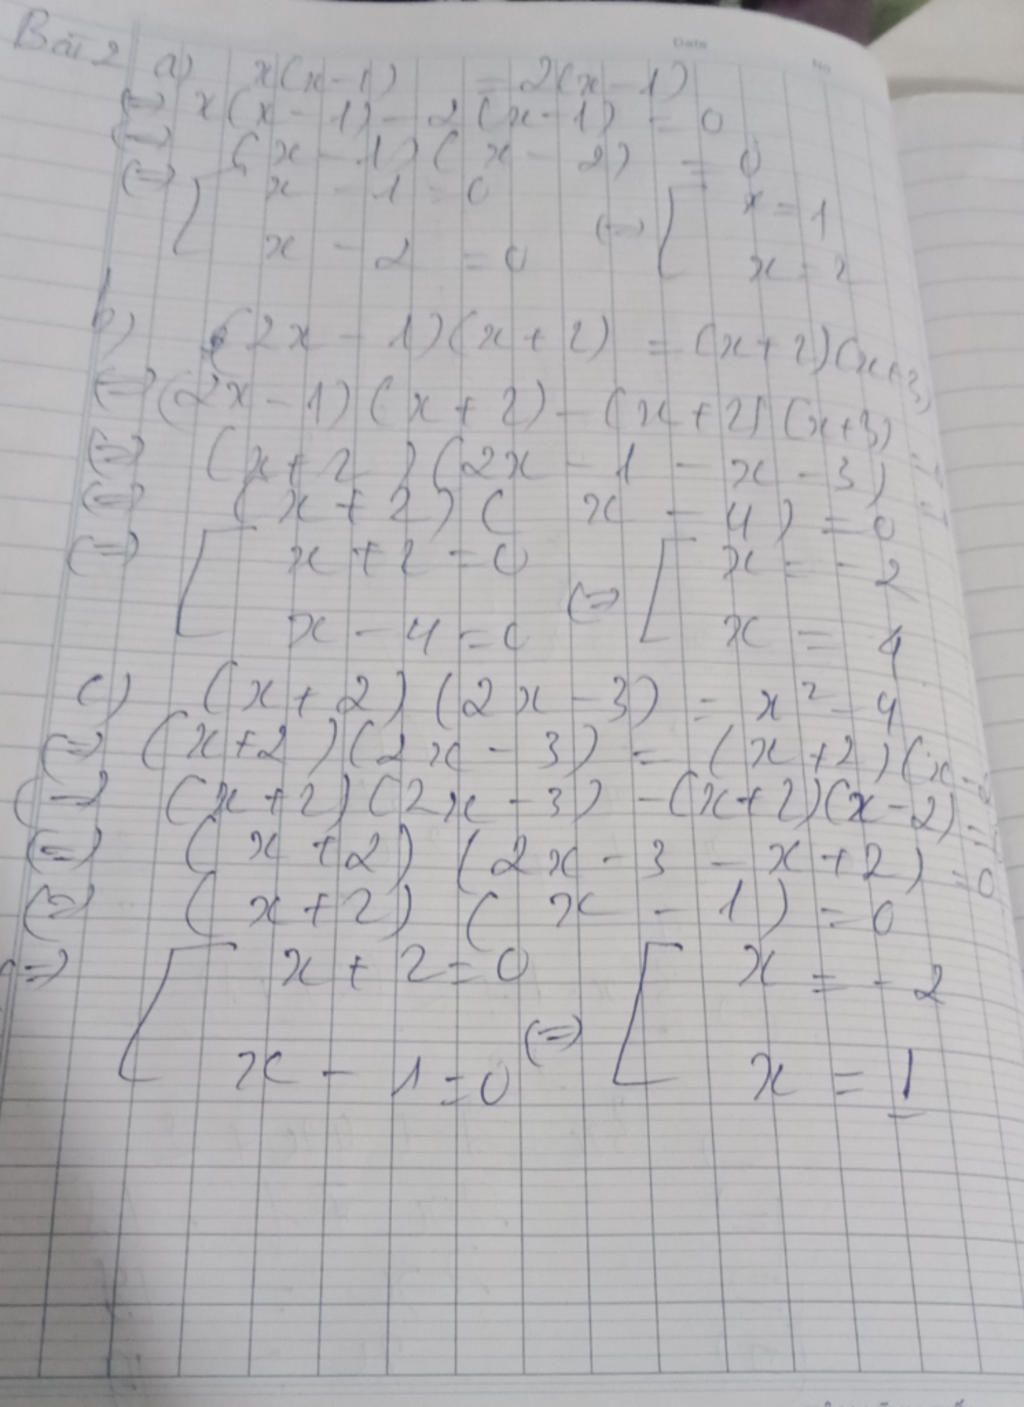 Date
No
Bài 2 a) x(x-1) = 2(x-1)
(=) x(x-1) - 2(x-1) = 0
(=) (x-1)(x-2) = 0
(=) [ x-1=0
x-2=0 (=) [ x=1
x=2
b) (2x-1)(x+2) = (x+2)(x+3)
(=) (2x-1)(x+2) - (x+2)(x+3)
(=) (x+2)(2x-1-x-3)
(=) (x+2)(x-4) = 0
(=) [ x+2=0
x-4=0 (=) [ x=-2
x=4
c) (x+2)(2x-3) = x²-4
(=) (x+2)(2x-3) = (x+2)(x-2
(=) (x+2)(2x-3) - (x+2)(x-2) =
(=) (x+2)(2x-3-x+2) = 0
(=) (x+2)(x-1) = 0
(=) [ x+2=0
x-1=0 (=) [ x=-2
x=1